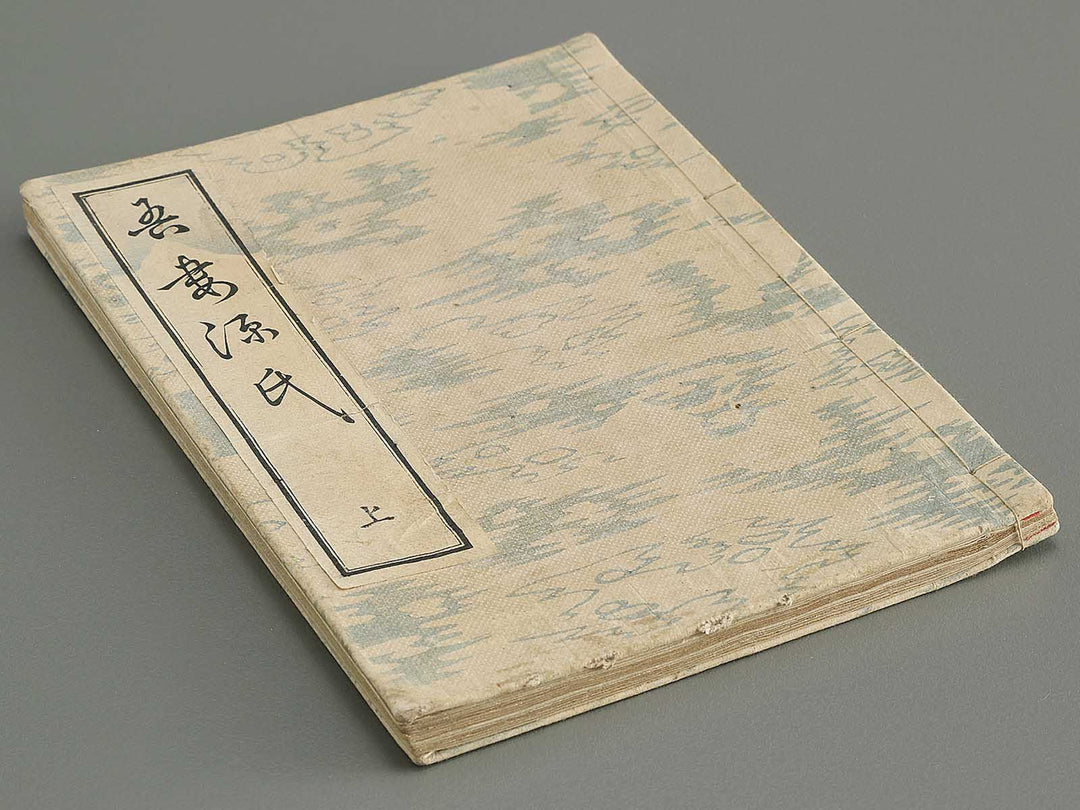 吾妻源氏
上